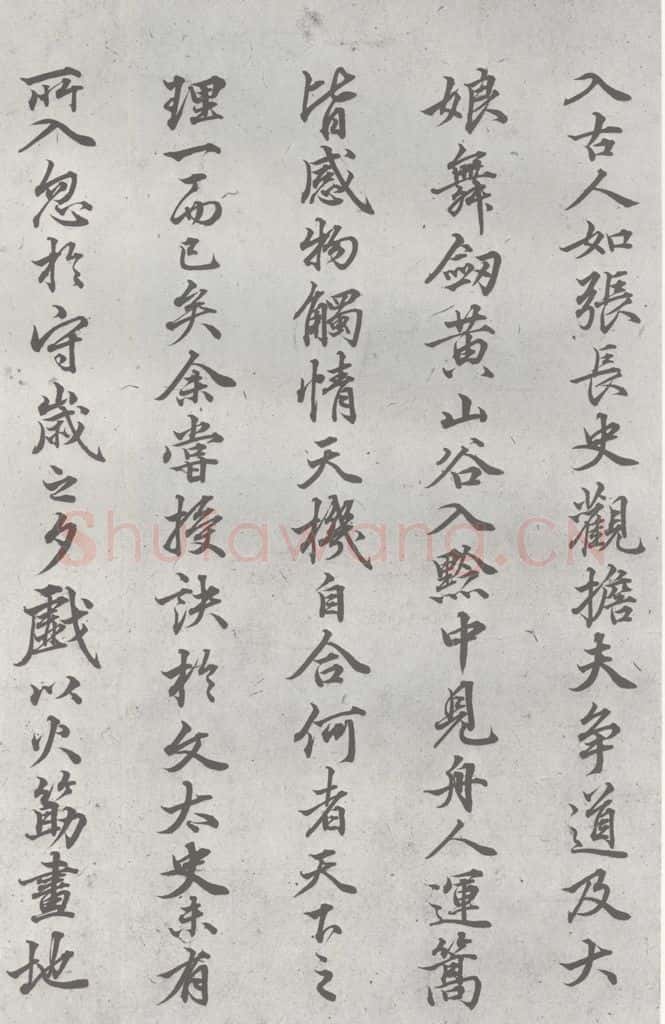 入古人如張長史觀擔夫争道及大
娘舞劒黄山谷入黔中見舟人運篙
皆感物觸情天機自合何者天下之
理一而已矣余嘗授訣於文太史未有
所入忽於守歲之夕戲以火筯畫地
Shufawang.CN